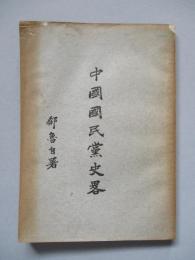 中國國民黨史畧
鄒魯自署